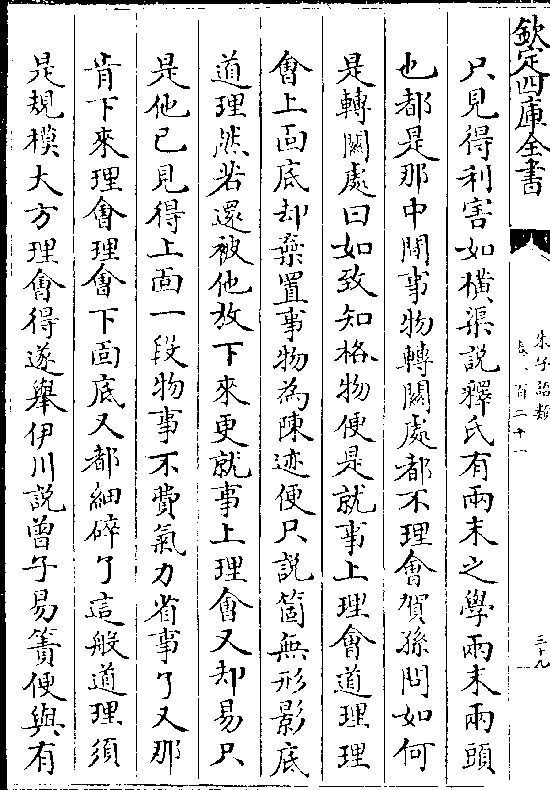 欽定四庫全書
朱子語類
卷一百二十一
三十九
只見得利害如横渠説釋氏有兩末之學兩末兩頭
也都是那中間事物轉關處都不理會賀孫問如何
是轉關處曰如致知格物便是就事上理會道理理
會上面底却棄置事物為陳迹便只説箇無形影底
道理然若還被他放下來更就事上理會又却易只
是他已見得上面一段物事不費氣力省事了又那
肯下來理會理會下面底又都細碎了這般道理須
是規模大方理會得遂舉伊川説曾子易簀便與有